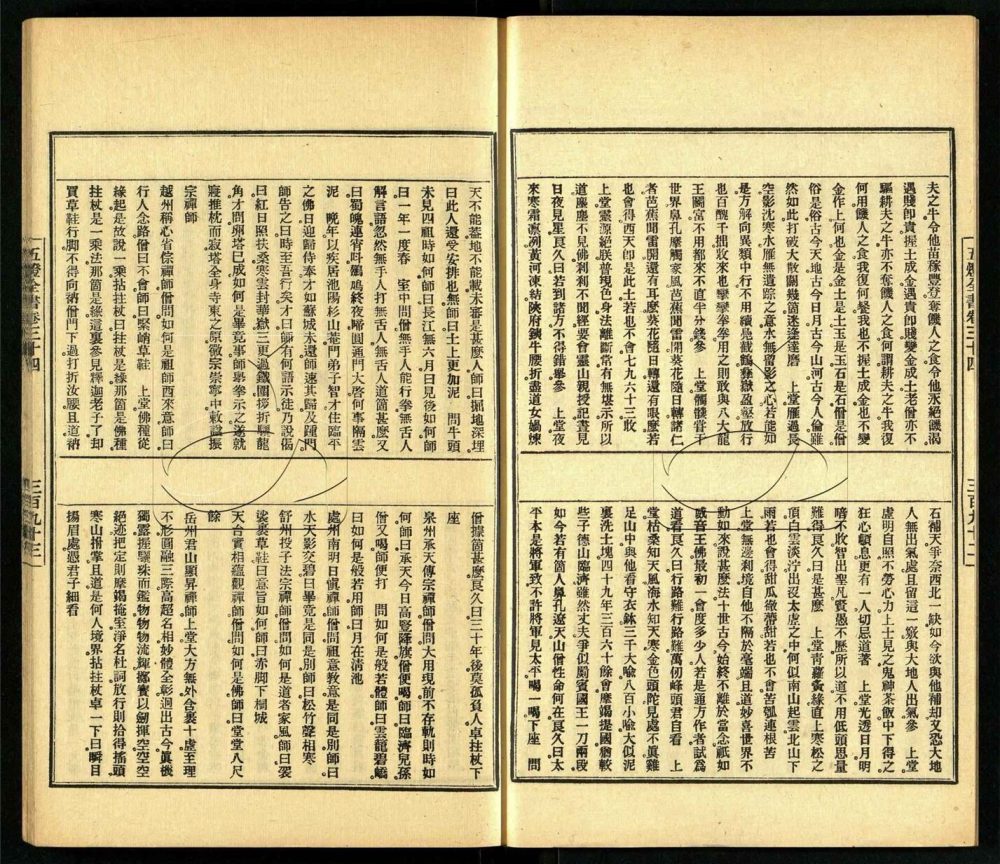 夫之牛令他苗稼豐登奪饑人之食令他永絕饑渴
遇賤卽貴握土成金遇貴卽賤變金成土老僧亦不
驅耕夫之牛亦不奪饑人之食何謂耕夫之牛我復
何用饑人之食我復何餐我也不握土成金也不變
金作土何也金是金土是土玉是玉石是石僧是僧
俗是俗古今天地古今日月古今山河古今人倫雖
然如此打破大散關幾箇迷逢達磨　上堂雁過長
空影沈寒水雁無遺踪之意水無留影之心若能如
是方解向異類中行不用續鳧截鶴夷嶽盈壑放行
也百醜千拙收來也攣攣拳拳用之則敢與八大龍
王鬭富不用都來不直半分錢參　上堂髑髏常干
世界鼻孔摩觸家風芭蕉聞雷開葵花隨日轉諸仁
者芭蕉聞雷開還有耳麽葵花隨日轉還有眼麽若
也會得西天卽是此土若也不會七九六十三收
上堂靈源絕朕普現色身法離斷常有無堪示所以
道塵塵不見佛刹刹不聞經要會靈山親授記晝見
日夜見星良久曰若到諸方不得錯舉參　上堂夜
來寒霜凛冽黃河凍結陝府鐵牛腰折盡道女媧煉
石補天爭奈西北一缺如今欲與他補却又恐大地
人無出氣處且留一竅與大地人出氣參　上堂
虛明自照不勞心力上士見之鬼神茶飯中下得之
狂心頓息更有一人切忌道著　上堂光透日月明
暗不收智出聖凡賢愚不歷所以道不用低頭思量
難得良久曰是甚麽　上堂靑蘿夤緣直上寒松之
頂白雲淡泞出沒太虛之中何似南山起雲北山下
雨若也會得甜瓜徹蔕甜若也不會苦瓠連根苦
上堂無邊刹境自他不隔於毫端且道妙喜世界不
動如來說甚麽法十世古今始終不離於當念祇如
威音王佛最初一會度多少人若是通方作者試爲
道看良久曰行路難行路難萬仞峰頭君自看　上
堂枯桑知天風海水知天寒金色頭陀見處不眞雞
足山中與他看守衣鉢三千大喻八百小喻大似泥
裏洗土塊四十九年三百六十餘會摩竭提國猶較
些子德山臨濟雖然丈夫爭似罽賓國王一刀兩段
如今若有箇人鼻孔遼天山僧性命何在良久曰太
平本是將軍致不許將軍見太平喝一喝下座　問
天不能葢地不能載未審是甚麽人師曰掘地深埋
曰此人還受安排也無師曰土上更加泥　問牛頭
未見四祖時如何師曰長江無六月曰見後如何師
曰一年一度春　室中問僧無手人能行拳無舌人
解言語忽然無手人打無舌人無舌人道箇甚麽又
曰蜀魄連宵呌鵽鳴終夜啼圓通門大啓何事隔雲
泥　晚年以疾居池陽杉山菴門弟子智才住臨平
之佛日迎歸侍奉才如蘇城未還師速其歸及踵門
師告之曰時至吾行矣才曰師有何語示徒乃說偈
曰紅日照扶桑寒雲封華嶽三更過鐵圍拶折驪龍
角才問卵塔已成如何是畢竟事師舉拳示之遂就
寢推枕而寂塔全身寺東之原徽宗崇寧中敕諡振
宗禪師
越州稱心省倧禪師僧問如何是祖師西來意師曰
行人念路僧曰不會師曰緊峭草鞋　上堂佛種從
緣起是故說一乘拈拄杖曰拄杖是緣那箇是佛種
拄杖是一乘法那箇是緣這裏參見釋迦老子了却
買草鞋行脚不得向衲僧門下過打折汝腰且道衲
僧據箇甚麽良久曰三十年後莫孤負人卓拄杖下
座
泉州承天傳宗禪師僧問大用現前不存軌則時如
何師曰承天今日高竪降旗僧便喝師曰臨濟兒孫
僧又喝師便打　問如何是般若體師曰雲籠碧嶠
曰如何是般若用師曰月在淸池
處州南明日愼禪師僧問祖意敎意是同是別師曰
水天影交碧曰畢竟是同是別師曰松竹聲相寒
舒州投子法宗禪師僧問如何是道者家風師曰袈
裟裹草鞋曰意旨如何師曰赤脚下桐城
天台寶相蘊觀禪師僧問如何是佛師曰堂堂八尺
餘
岳州君山顯昇禪師上堂大方無外含裹十虛至理
不形圓融三際高超名相妙體全彰迥出古今眞機
獨露握驪珠而鑑物物物流輝擲寶以劒揮空空空
絕迹把定則摩竭掩室淨名杜詞放行則拾得搖頭
寒山拊掌且道是何人境界拈拄杖卓一下曰瞬目
揚眉處憑君子細看
五燈全書卷三十四
三百九十三